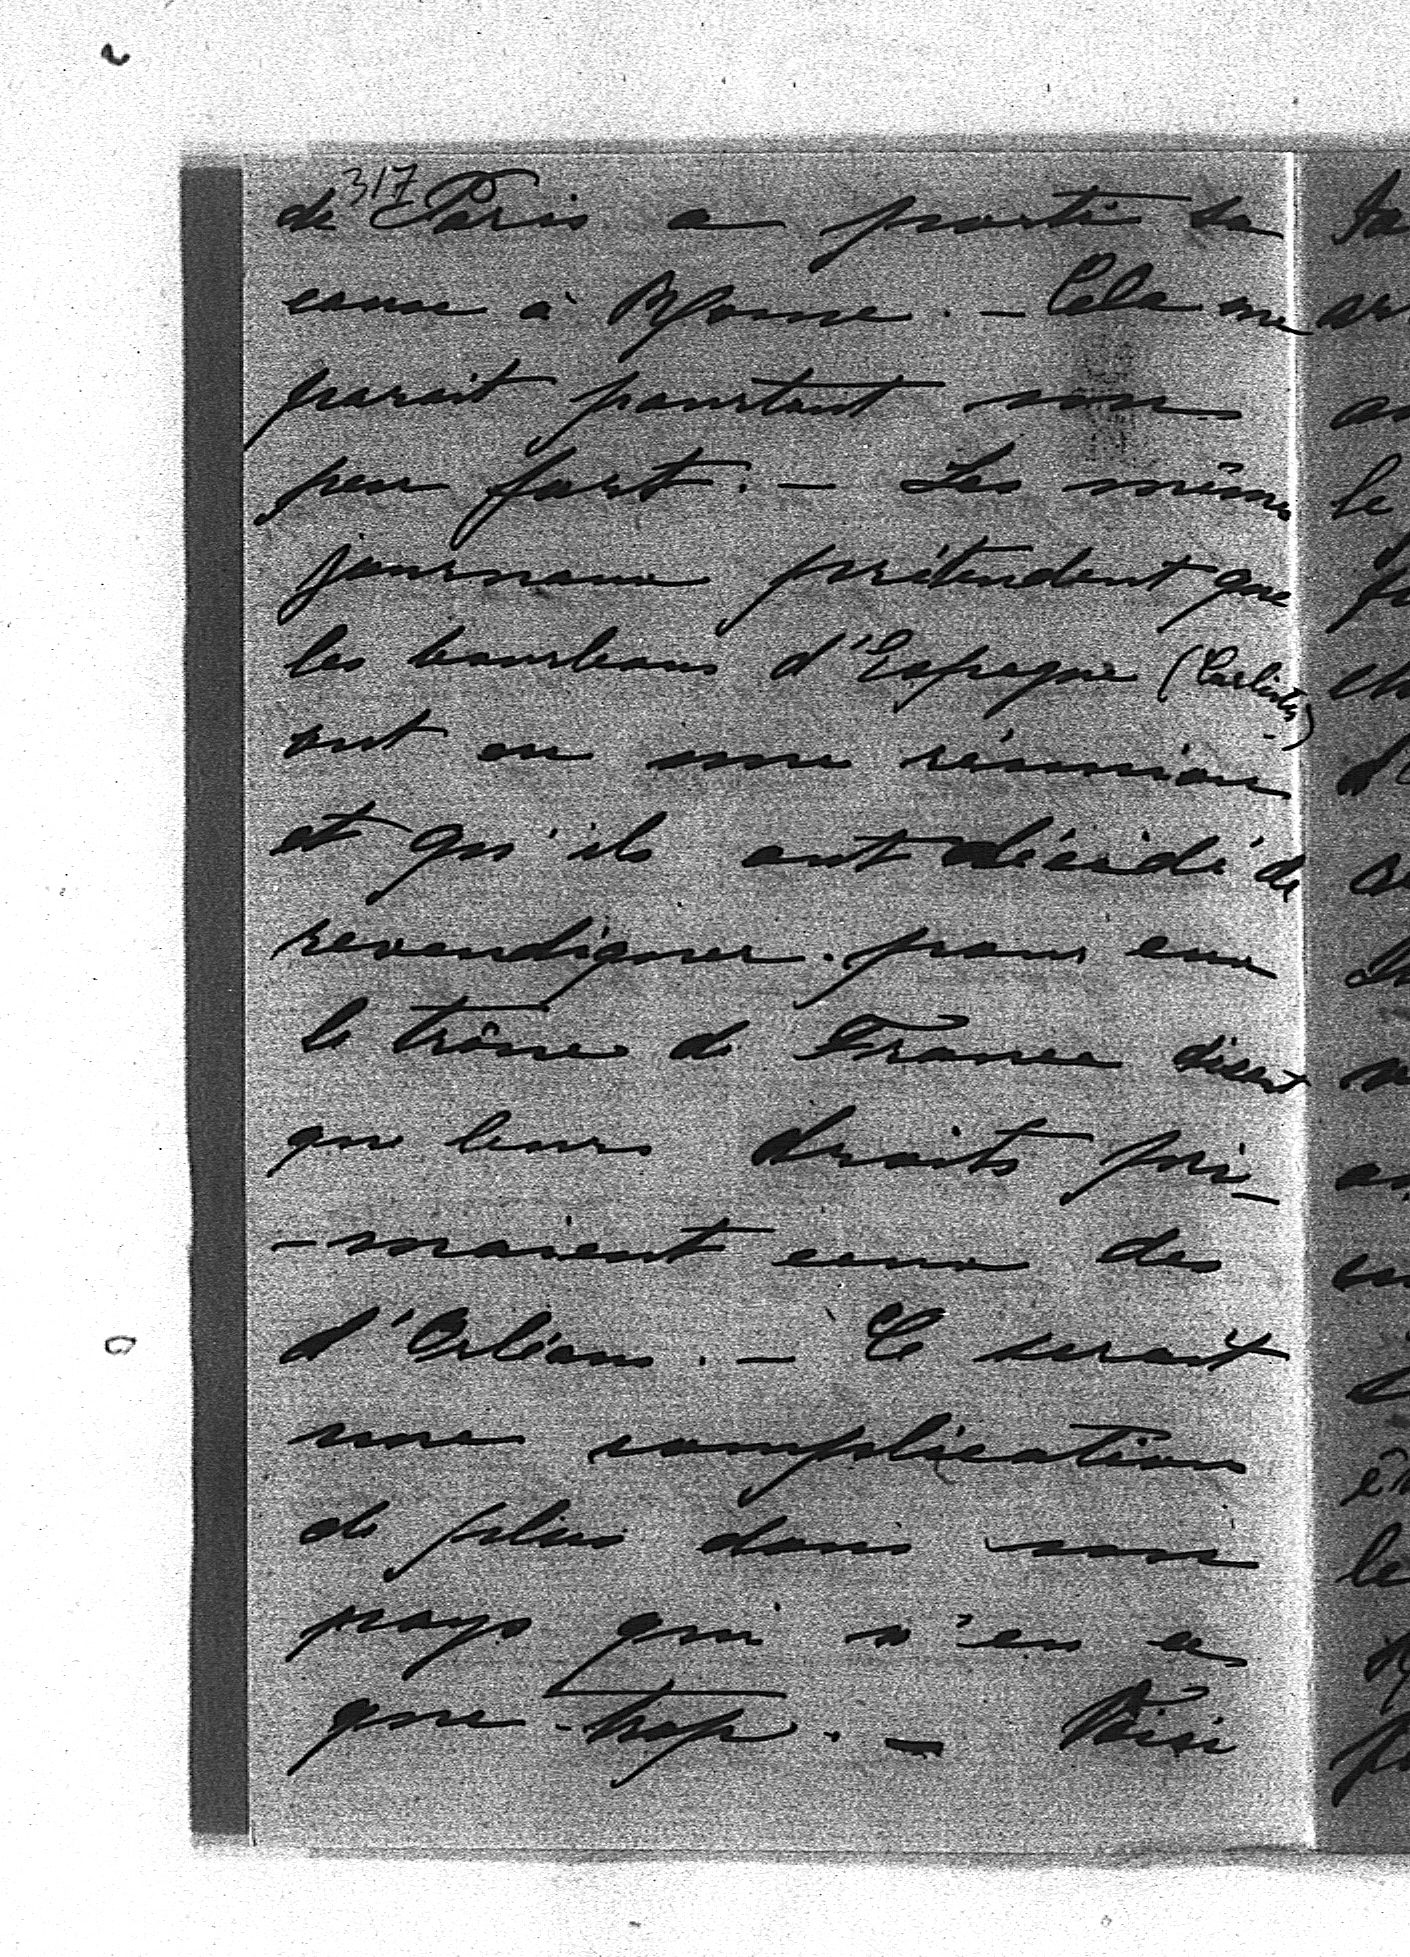 317
de Paris a porté sa
cause à Rome. - Cela me
parait pourtant un
peu fort. - Les mêmes
journaux prétendent que
les bourbons d'Espagne (Carlistes)
ont eu une réunion
et qu'ils ont décidé de
revendiquer pour eux
le trône de France disant
que leurs droits pri-
-maient ceux des
d'Orléans. - Ce serait
une complication
de plus dans un
pays qui n'en a
que trop. - Voici